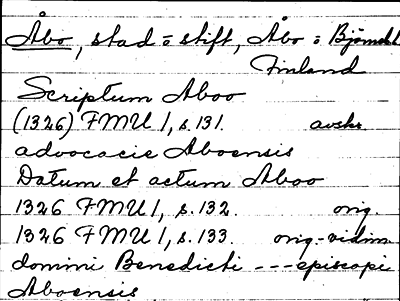 Åbo, stad o stift, Åbo o Björneb l
Finland
Scriptum Aboo
(1326) FMU 1, s. 131. avskr.
advocacie Aboensis
Datum et actum Aboo
1326 FMU 1, s. 132. orig.
1326 FMU 1, s. 133. orig.-vidim.
domini Benedicti --- episcopi
Aboensis